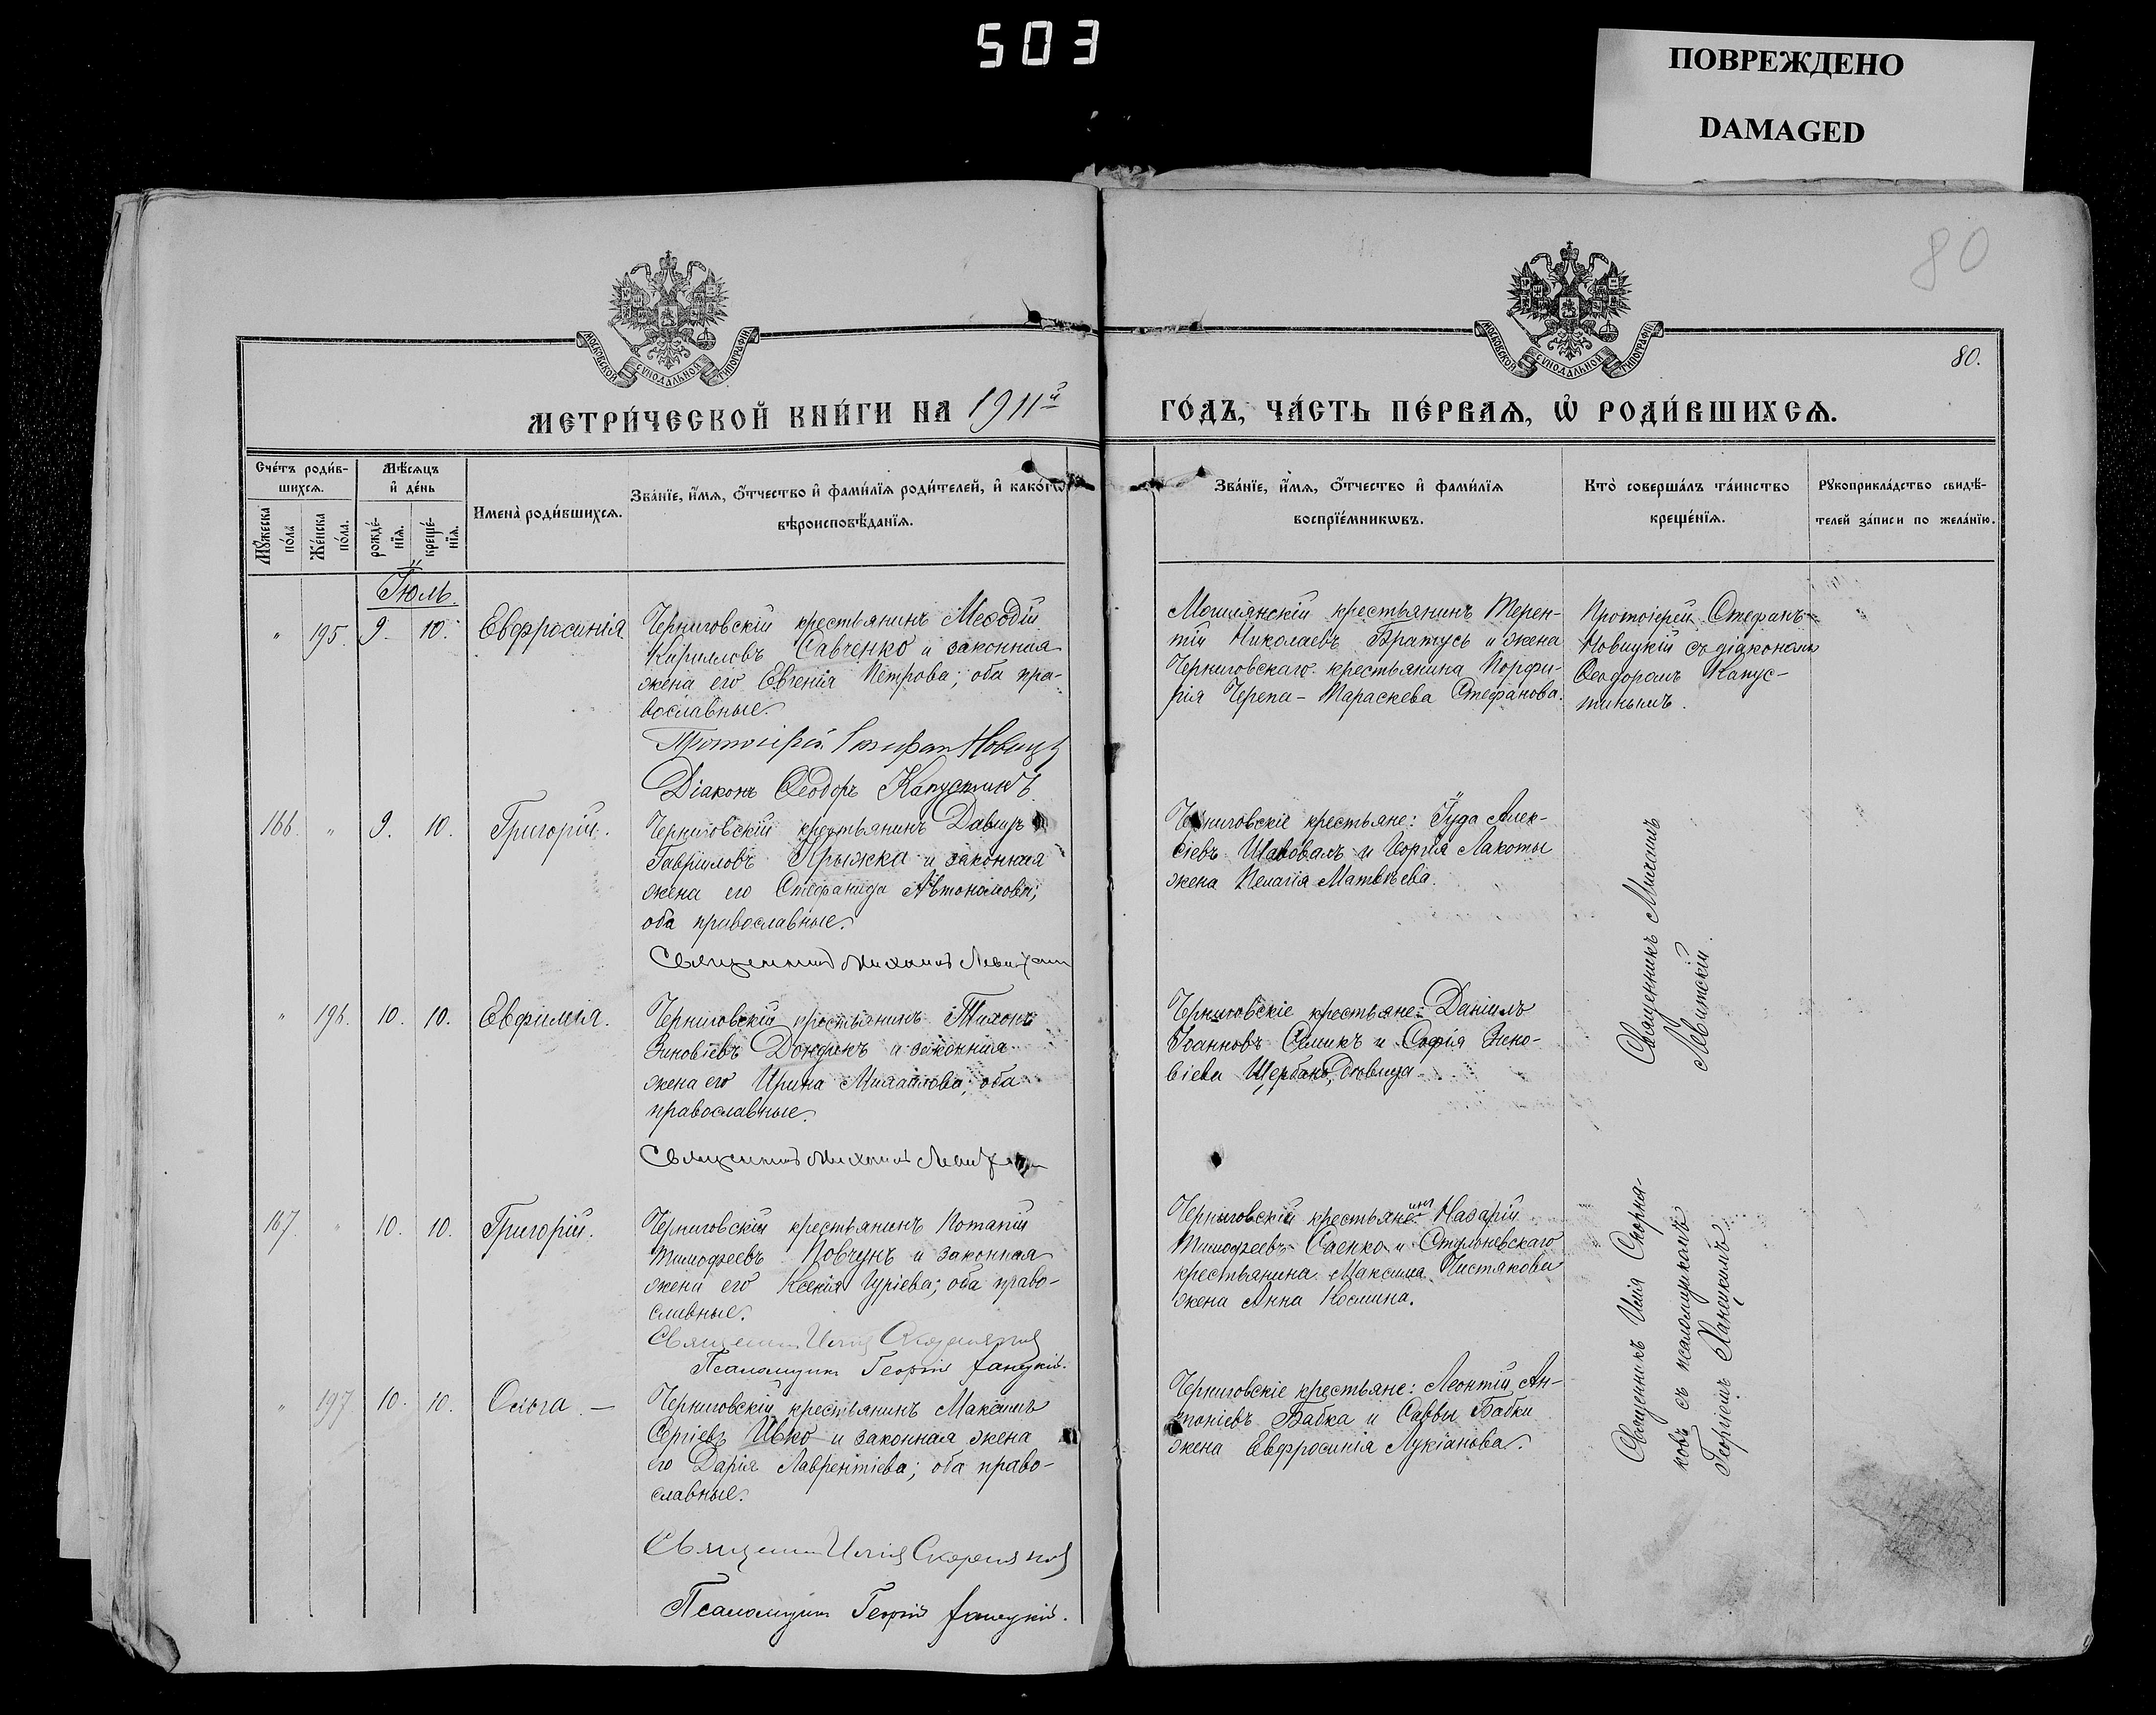 503
ПОВРЕЖДЕНО
DAMAGED
80
80.
МОСКОВСКОЙ СУНОДАЛЬНОЙ ТИПОГРАФІИ
МОСКОВСКОЙ СУНОДАЛЬНОЙ ТИПОГРАФІИ
МЕТРИ́ЧЕСКОЙ КНИ́ГИ НА 1911й
ГО́ДЪ, ЧА́СТЬ ПЕ́РВАѦ, Ѡ҆ РОДИ́ВШИХСѦ.
Сче́тъ роди́в-
шихсѧ.
Мꙋ́жеска
по́ла
Же́нска
по́ла.
Мѣ́сѧцъ
и҆ де́нь
рожде́-
нїѧ.
креще́-
нїѧ.
Имена̀ роди́вшихсѧ.
Зва́нїе, и҆́мѧ, ѻ҆́тчество и҆ фами́лїѧ роди́телей, и҆ како́гѡ
вѣроисповѣ́данїѧ.
Зва́нїе, и҆́мѧ, ѻ҆́тчество и҆ фами́лїѧ
воспрїе́мникѡвъ.
Кто̀ соверша́лъ та́инство
креще́нїѧ.
Рꙋкоприкла́дство свидѣ́-
телей за́писи по жела́нїю.
Іюль.
" 195. 9. 10. Евфросинія
Черниговскій крестьянинъ Меѳодій
Кириловъ Савченко и законная
жена его Евгенія Петрова; оба пра-
вославные.
Протоіерей Стефан Новицк
Діаконъ Ѳеодоръ Капустинъ
Могилянскій крестьянинъ Терен-
тій Николаевъ Братусь и жена
Черниговскаго крестьянина Порфи-
рія Черепа - Параскева Стефанова.
Протоіерей Стефанъ
Новицкій съ діакономъ
Ѳеодоромъ Капус-
тинымъ.
166. " 9. 10. Григорій.
Черниговскій крестьянинъ Давидъ
Гавриловъ Прыжка и законная
жена его Стефанида Автономова;
оба православные.
Священникъ Михаилъ Левитскій
Черниговскіе крестьяне: Іуда Алек-
сіевъ Шаповалъ и Георгія Лакоты
жена Пелагія Матвѣева.
Священникъ Михаилъ
Левитскій.
" 196. 10. 10. Евфимія.
Черниговскій крестьянинъ Тихонъ
Зиновіевъ Дондикъ и законная
жена его Ирина Михайлова; оба
православные.
Священникъ Михаилъ Левитскій
Черниговскіе крестьяне: Даніилъ
Іоанновъ Семикъ и Софія Зино-
віева Щербань, дѣвица
167. " 10. 10. Григорій.
Черниговскій крестьянинъ Потапій
Тимофеевъ Повчунъ и законная
жена его Ксенія Гуріева; оба право-
славные.
Священникъ Илія Скорняковъ
Псаломщикъ Георгій Ханецкій.
Черниговскій крестьянинъ Назарій
Тимофеевъ Саенко и
крестьянина Максима Чистякова
жена Анна Космина.
Священникъ Илія Скорня-
ковъ съ псаломщикомъ
Георгіемъ Ханецкимъ
" 197 10. 10. Ольга. —
Черниговскій крестьянинъ Максимъ
Сергіевъ Ивко и законная жена
его Дарія Лаврентіева; оба право-
славные.
Священникъ Илія Скорняковъ
Псаломщикъ Георгій Ханецкій.
Черниговскіе крестьяне: Леонтій Ан-
тоніевъ Бабка и Саввы Бабки
жена Евфросинія Лукіанова.